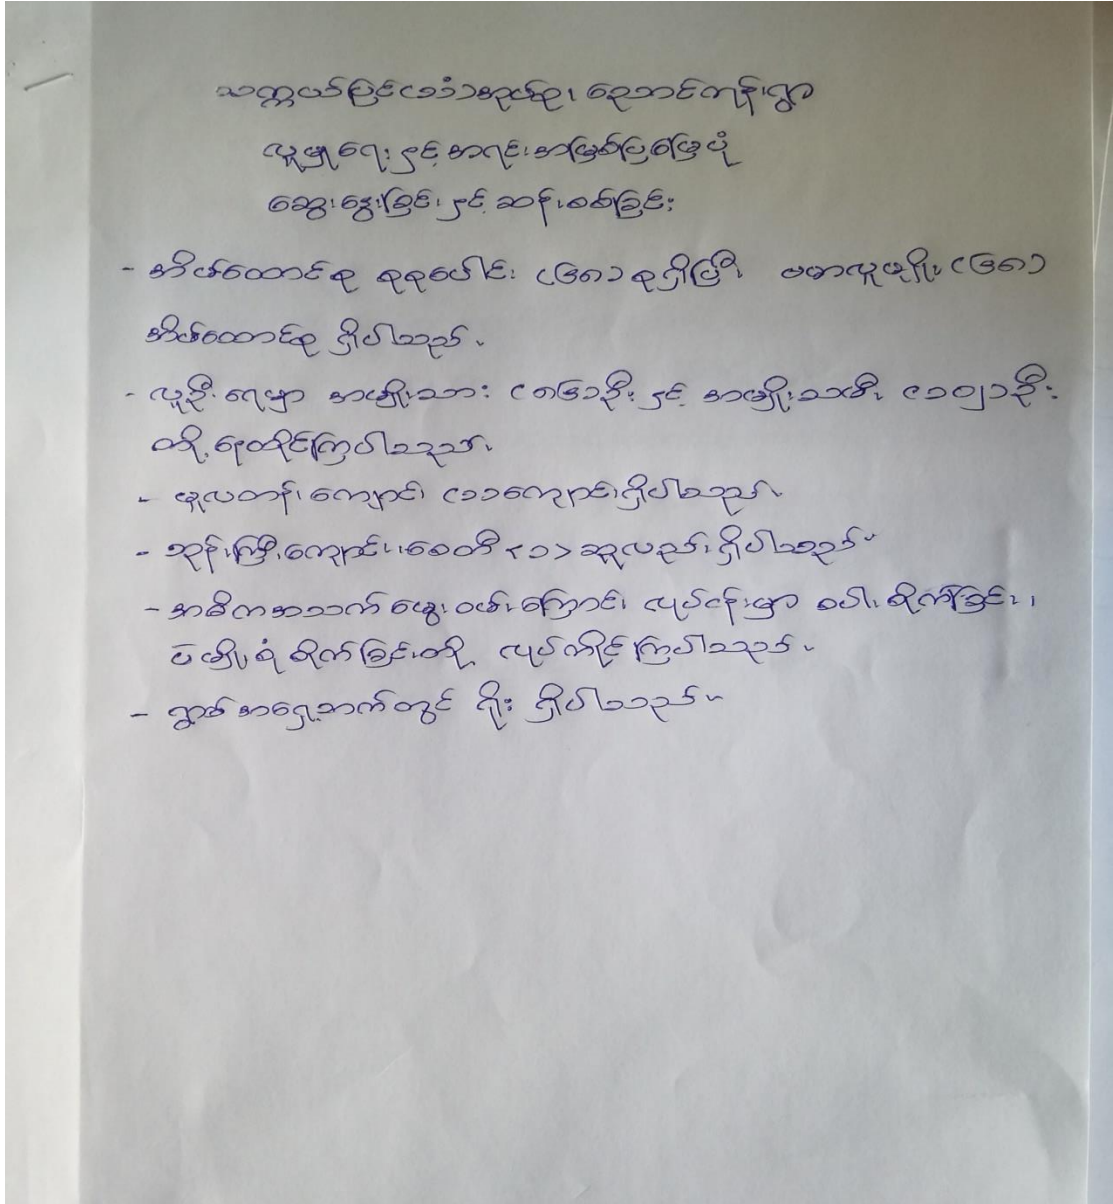 သက္ကယ်ပြင်(ခ)အုပ်စု၊ ညောင်ကုန်းရွာ
လူမှုရေးနှင့် အရင်းအမြစ်ပြမြေပုံ
ဆွေးနွေးခြင်းနှင့် ဆန်းစစ်ခြင်း
- အိမ်ထောင်စု စုစုပေါင်း (၆၈) စုရှိပြီး ဗမာလူမျိုး (၆၈)
အိမ်ထောင်စု ရှိပါသည်။
- လူဦးရေမှာ အမျိုးသား (၈၆)ဦးနှင့် အမျိုးသမီး (၁၀၂)ဦး
တို့ နေထိုင်ကြပါသည်။
- မူလတန်းကျောင်း (၁)ကျောင်းရှိပါသည်။
- ဘုန်းကြီးကျောင်း၊ စေတီ <၁> ဆူလည်း ရှိပါသည်။
- အဓိကအသက်မွေးဝမ်းကြောင်း လုပ်ငန်းမှာ စပါးစိုက်ခြင်း၊
ပဲမျိုးစုံစိုက်ခြင်းတို့ လုပ်ကိုင်ကြပါသည်။
- ရွာ၏အရှေ့ဘက်တွင် ရိုး ရှိပါသည်။